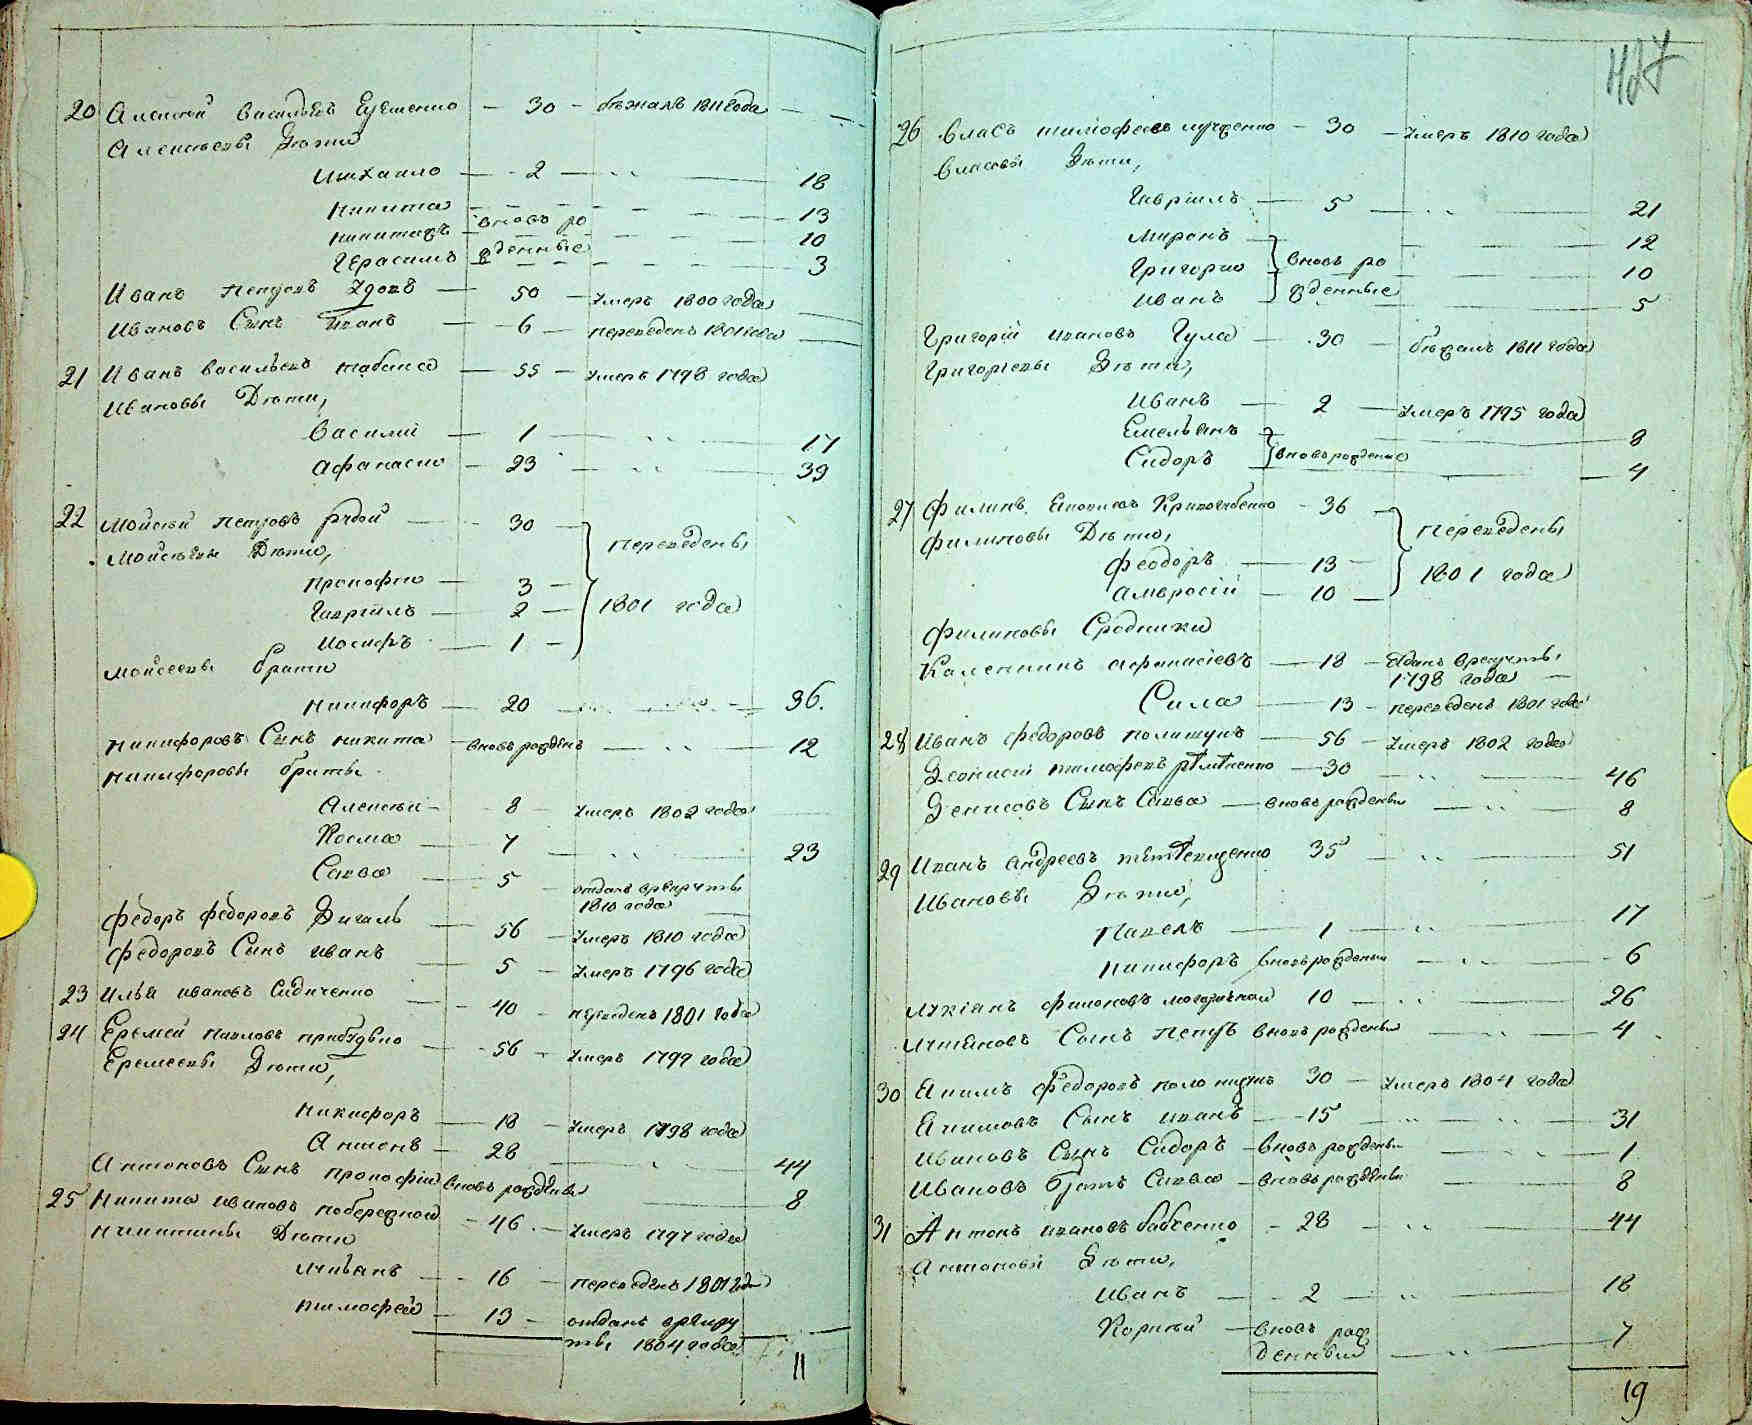 20 Алексей Васильевъ Ецешенко — 30 — бежалъ 1811 года —
Алексеевы Дети
Михаило — 2 — 18
Никита — 13
Никитаръ вновь ро — 10
Герасимъ жденные — 3
Иванъ Петровъ Удовъ — 50 — умеръ 1800 года
Ивановъ Сынъ Иванъ — 6 — переведенъ 1801 года
21 Иванъ Васильевъ Табанса — 55 — умеръ 1798 года
Ивановы Дети,
Василий — 1 — 17
Афанасио — 23 — 39
22 Мойсей Петровъ Рудой — 30 — переведены
Мойсеевы Дети,
Прокофио — 3
Гаврiилъ — 2 — 1801 года
Иосифъ — 1
Мойсеевы братья
Никифоръ — 20 — 36.
Никифоровъ Сынъ Никита — вновь рожденъ — 12
Никифоровы братья
Алексей — 8 — умеръ 1802 года
Косма — 7 — 23
Савва — 5 — отданъ врекруты
1810 года
Федоръ Федоровъ Дигаль — 56 — умеръ 1810 года
Федоровъ Сынъ Иванъ — 5 — умеръ 1796 года
23 Илья Ивановъ Сидиченко — 40 — переведенъ 1801 года
24 Еремей Павловъ — 56 — умеръ 1799 года
Еремеевы Дети,
Никифоръ — 18 — умеръ 1798 года
Антонъ — 28 — 44
Антоновъ Сынъ Прокофiй вновь рожденъ — 8
25 Никита Ивановъ Побережной — 46 — умеръ 1797 года
Никитины Дети
Лукьянъ — 16 — переведенъ 1801 года
Тимофей — 13 — отданъ врекру
ты 1804 года
11
427
26 Власъ Тимофеевъ Луценко — 30 — умеръ 1810 года
Власовы Дети,
Гаврiилъ — 5 — 21
Миронъ — 12
Григорио вновь ро — 10
Иванъ жденные — 5
Григорiй Ивановъ Гула — 30 — бежалъ 1811 года
Григорiевы Дети,
Иванъ — 2 — умеръ 1795 года
Емельянъ — 8
Сидоръ вновь рожденные — 4
27 Филипъ — 36 — переведены
Филиповы Дети,
Феодоръ — 13
Амвросiй — 10 — 1801 года
Филиповы Сродники
Каленникъ Афанасiевъ — 18 — отданъ врекруты
1798 года —
Сила — 13 — переведенъ 1801 года
28 Иванъ Федоровъ — 56 — умеръ 1802 года
Деонисiй Тимофеевъ — 30 — 46
Денисовъ Сынъ Савва — вновь рожденъ — 8
29 Иванъ Андреевъ — 35 — 51
Ивановы Дети,
Павелъ — 1 — 17
Никифоръ вновь рожденъ — 6
Лукiанъ — 10 — 26
Лукiановъ Сынъ Петръ вновь рожденъ — 4
30 Акимъ Федоровъ — 30 — умеръ 1804 года
Акимовъ Сынъ Иванъ — 15 — 31
Ивановъ Сынъ Сидоръ — вновь рожденъ — 1
Ивановъ братъ Савва — вновь рожденъ — 8
31 Антонъ Ивановъ Бабченко — 28 — 44
Антоновы Дети,
Иванъ — 2 — 18
Корней — вновь рож
денный — 7
19